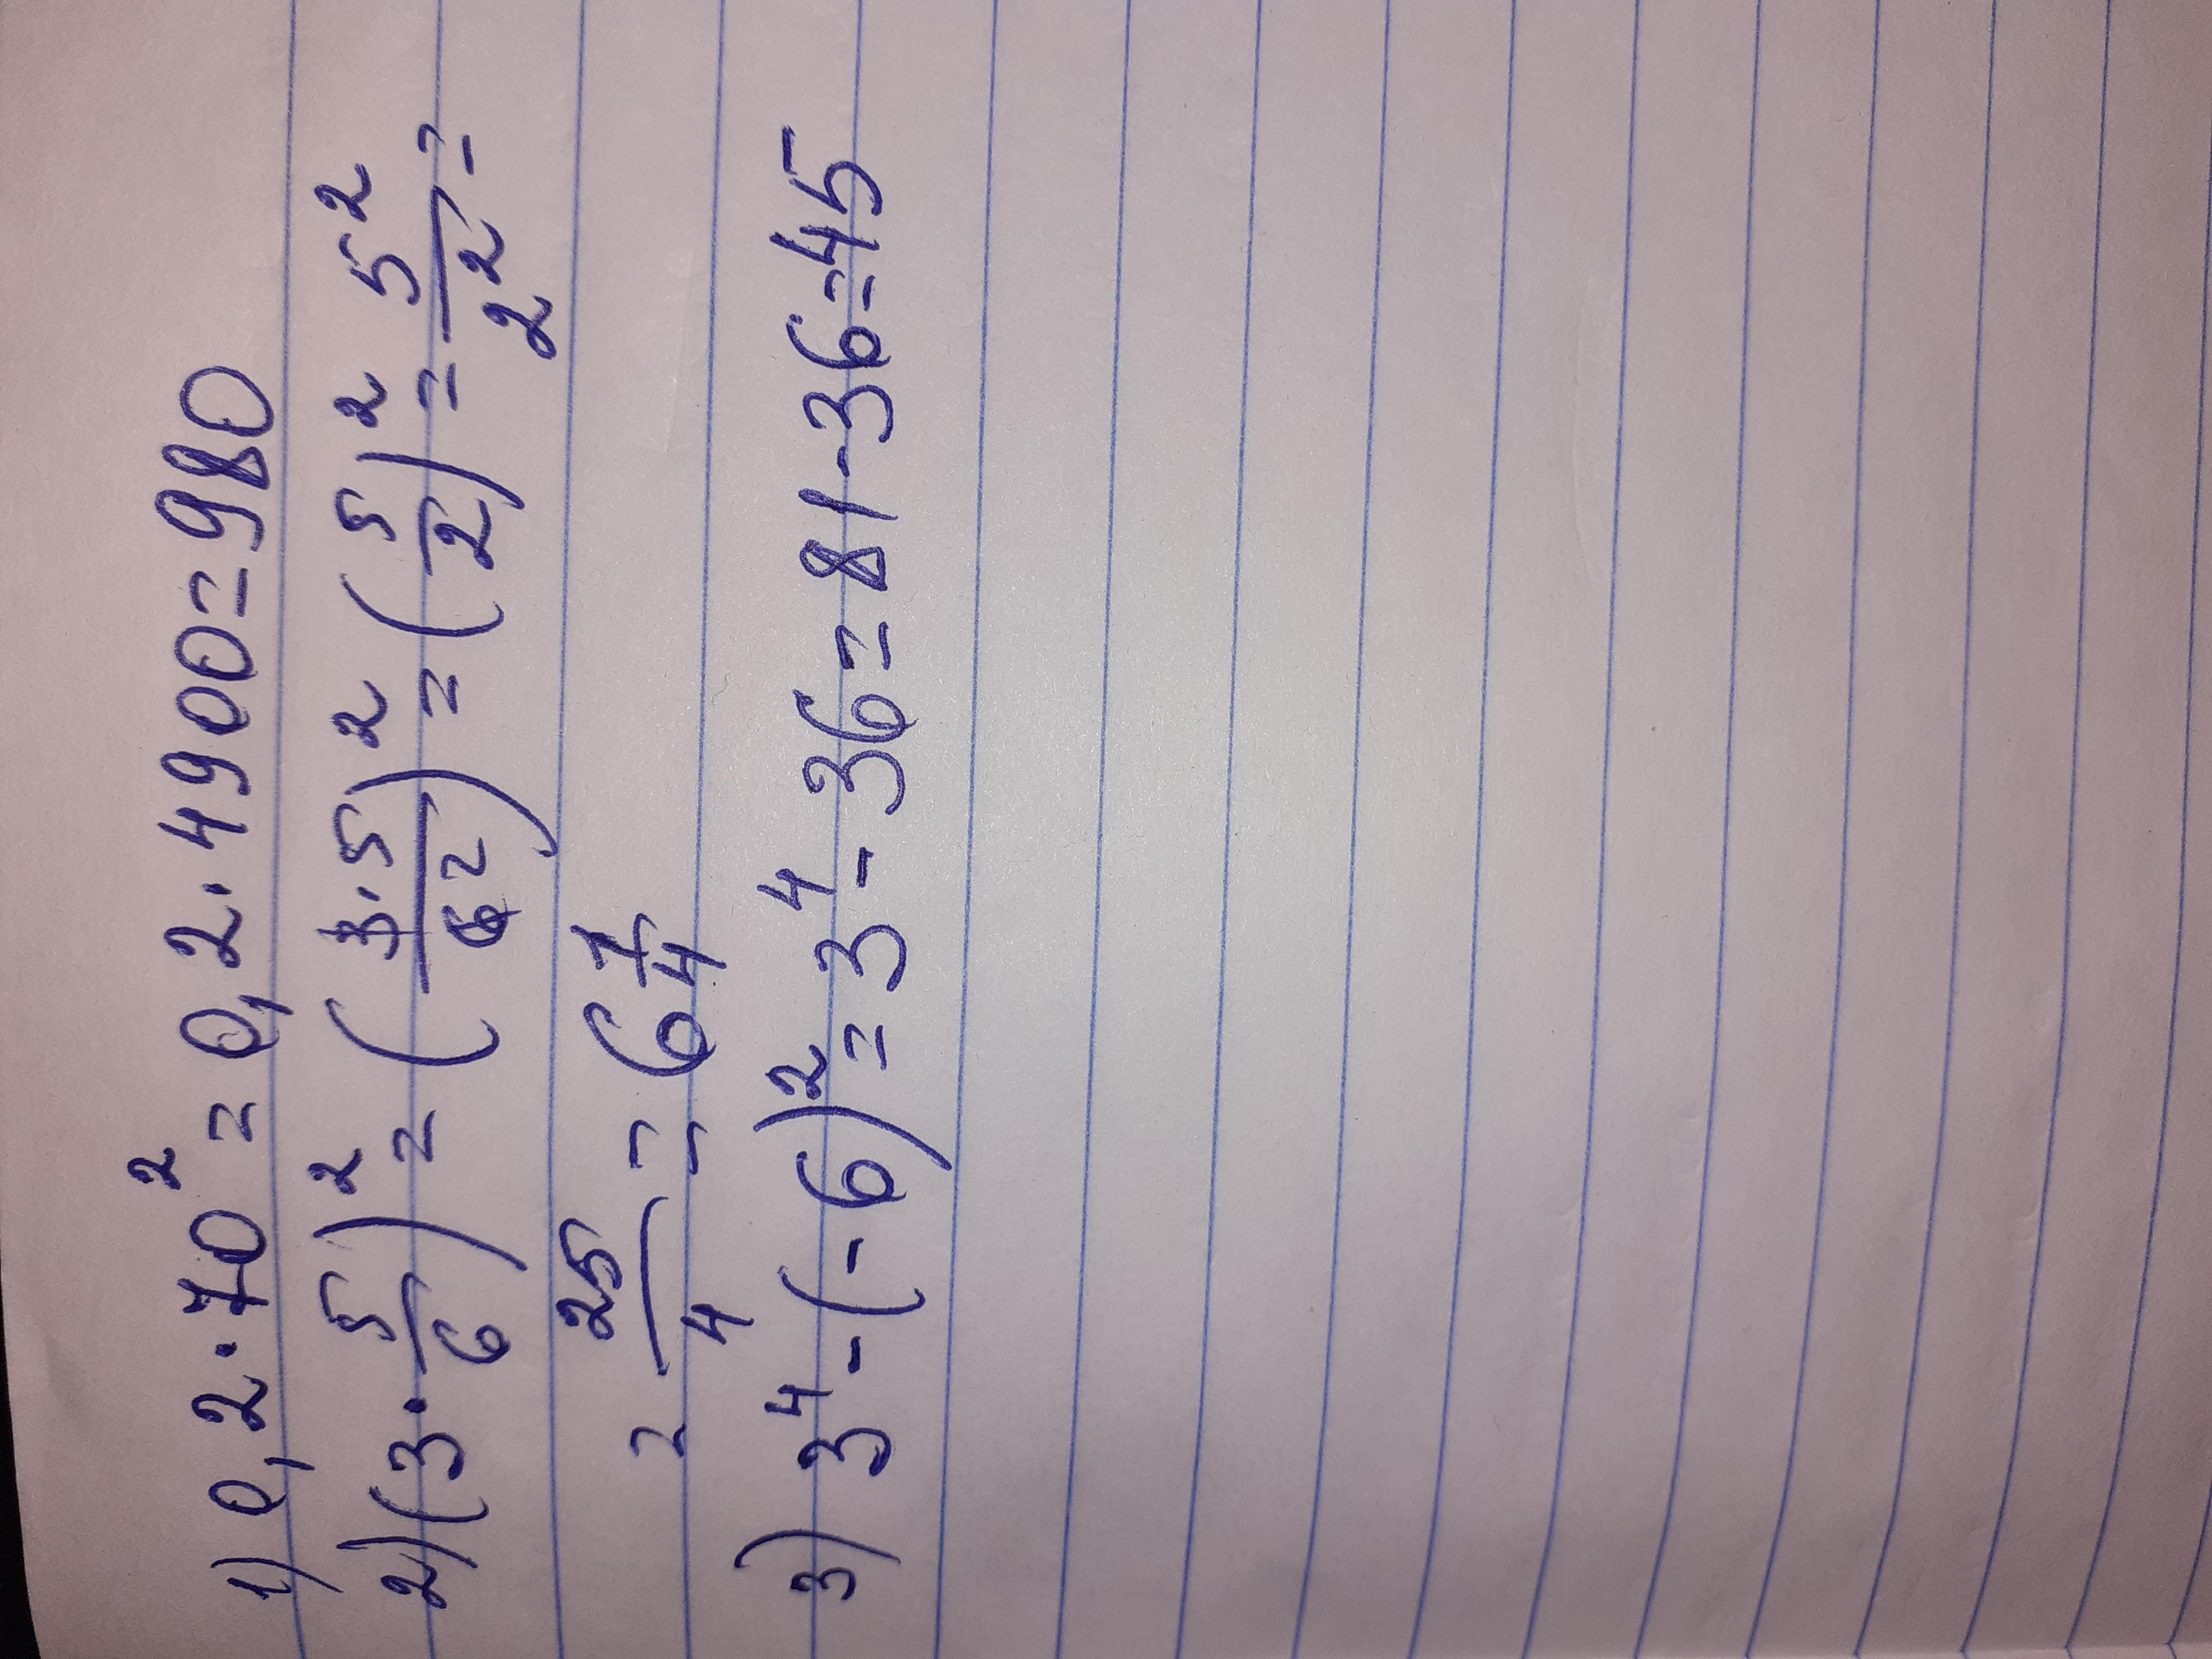 1) 0,2·70² = 0,2·4900=980
2) (3·5/6)² = (3·5/6 2)² = (5/2)² = 5²/2² =
= 25/4 = 6 1/4
3) 3⁴-(-6)² = 3⁴-36 = 81-36=45